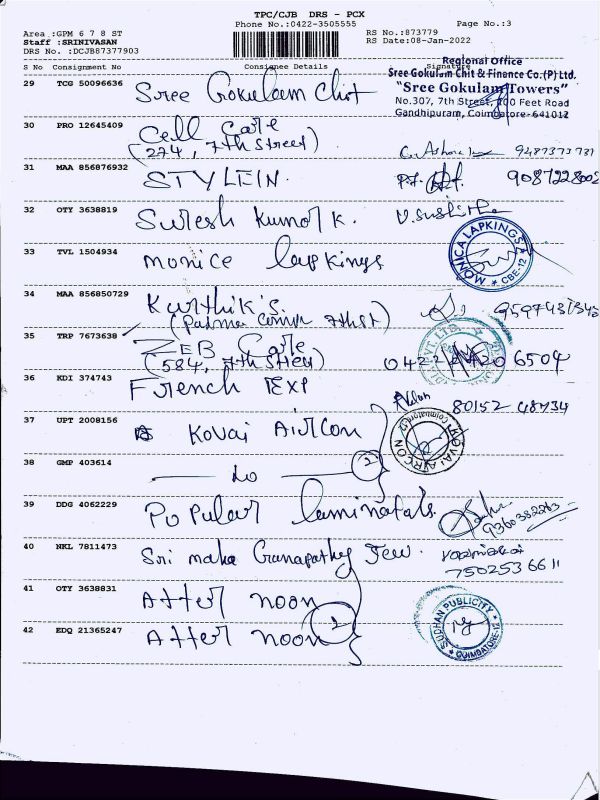 TPC/CJB DRS - PCX
Phone No.:0422-3505555
Page No.:3
Area :GPM 6 7 8 ST
Staff :SRINIVASAN
DRS No. :DCJB87377903
RS No.:873779
RS Date:08-Jan-2022
S No Consignment No Consignee Details Signature
Regional Office
Sree Gokulam Chit & Finance Co.(P) Ltd.
"Sree Gokulam Towers"
No.307, 7th Street, 100 Feet Road
Gandhipuram, Coimbatore-641012
29 TCG 50096636 Sree Gokulam Chit
30 PRO 12645409 Cell Care
(274, 7th Street)
31 MAA 856876932 STYLEIN.
32 OTY 3638819 Suresh Kumar K.
33 TVL 1504934 Monice lapkings
MONICA LAPKINGS * CBE-12 *
34 MAA 856850729 Karthik S.
35 TRP 7673638 ZEB Care
(584, 7th Street)
36 KDI 374743 French Exp
80152 48734
37 UPT 2008156 Kovai Aircon
KOVAI AIRCON
38 GMP 403614 Do 2
39 DDG 4062229 Popular laminatals.
40 NKL 7811473 Sri maha Ganapathy Jew.
7502536611
41 OTY 3638831 After noon
42 EDQ 21365247 After noon 2
SUDHAN PUBLICITY * COIMBATORE-12 *